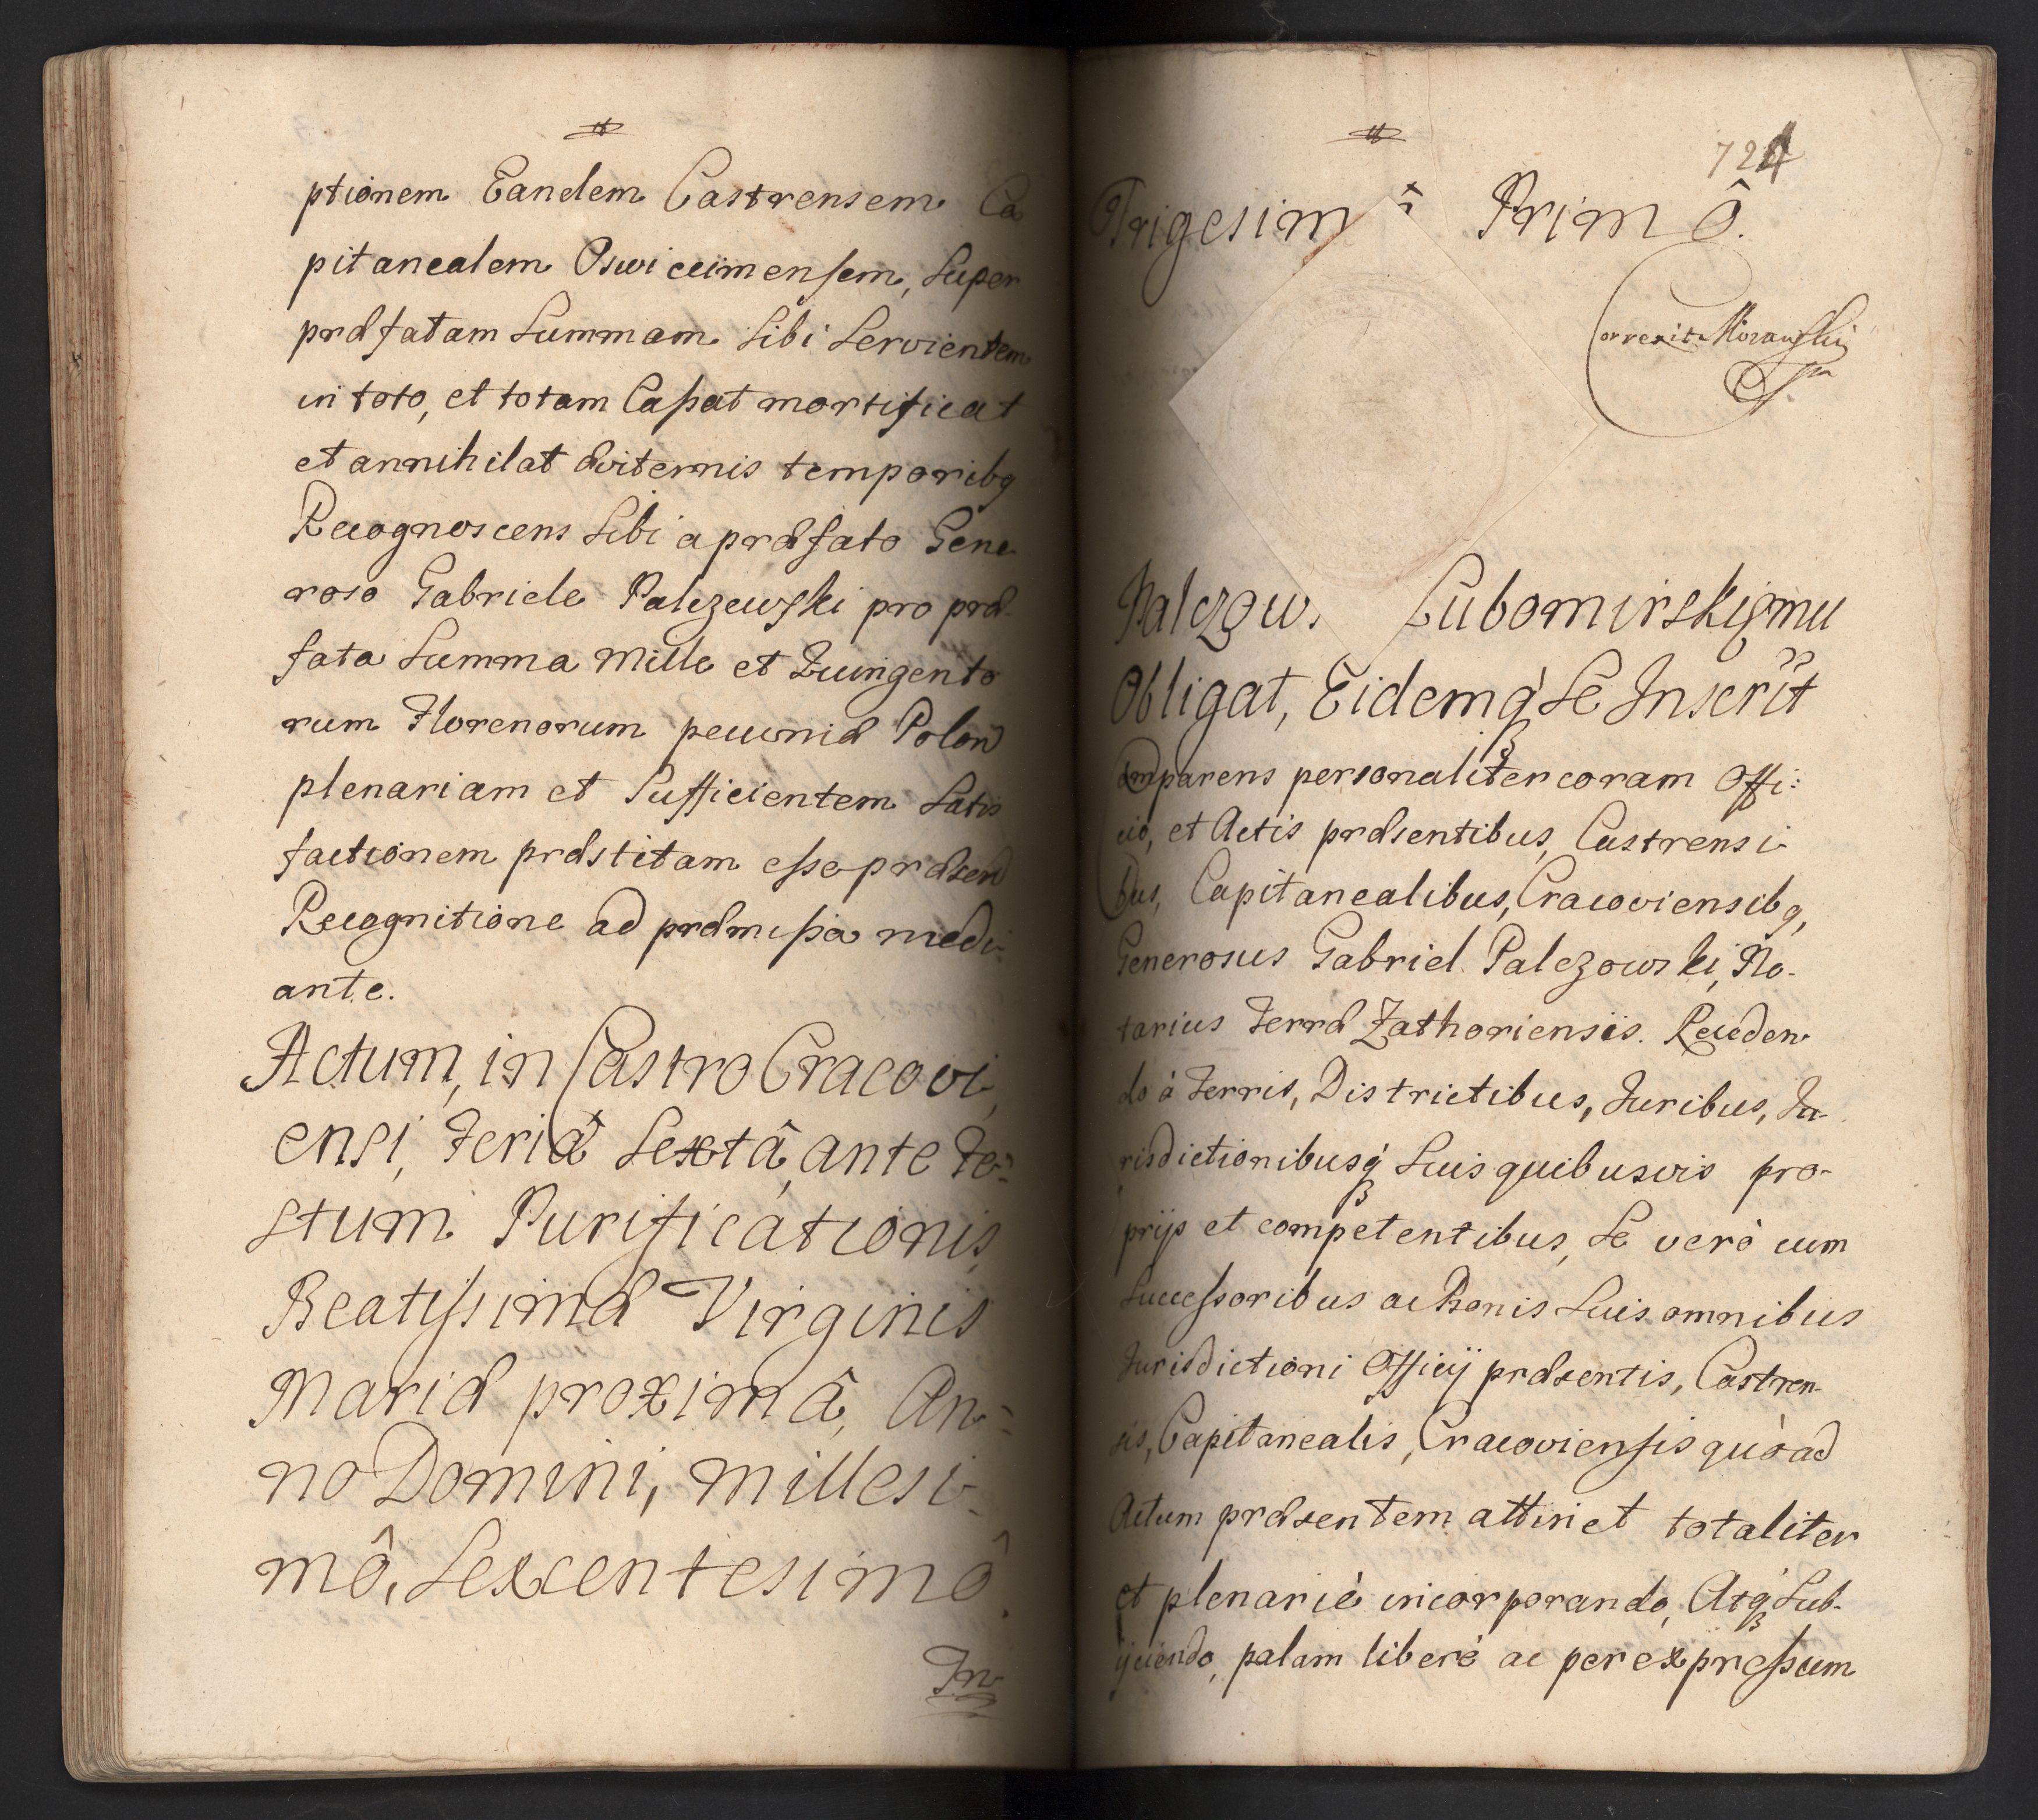 ptionem Eandem Castrensem Ca
pitanealem Oswiecimensem, Super
præfatam Summam Sibi Servientem
in toto, et totam Cassat mortificat
et annihilat æviternis temporibq
Recognoscens Sibi a præfato Gene
roso Gabriele Palczewski pro præ-
fata Summa Mille et Quingento
rum Florenorum pecuniæ Polon
plenariam et Sufficientem Satis
factionem præstitam esse præsen
Recognitione ad præmissa medi-
ante.
Actum, in Castro Cracovi,
ensi, Feriâ Sextâ, ante Fe=
stum Purificationis,
Beatissimæ Virginis
Mariæ proximâ, An=
no Domini, Millesi-
mô, Sexcentesimô.
724
Trigesimô Primô.
Correxit Morawski
Palczow. Lubomirskiemu
Obligat, Eidemq́ Se Inscrit
Comparens personaliter coram Offi:
cio, et Actis præsentibus, Castrensi
bus, Capitanealibus, Cracoviensibq,
Generosus Gabriel Palczowski, No-
tarius Terræ Zathoriensis. Receden
do à Terris, Districtibus, Juribus, Ju-
risdictionibusq́ Suis quibusvis pro-
prijs et competentibus, Se verò cum
Successoribus ac Bonis Suis omnibus
Jurisdictioni Officij præsentis, Castren-
sis, Capitanealis, Cracoviensis quòad
Actum præsentem attinet totaliter
et plenariè incorporando, Atq́ Sub-
ijciendo, palam liberè ac per expressum